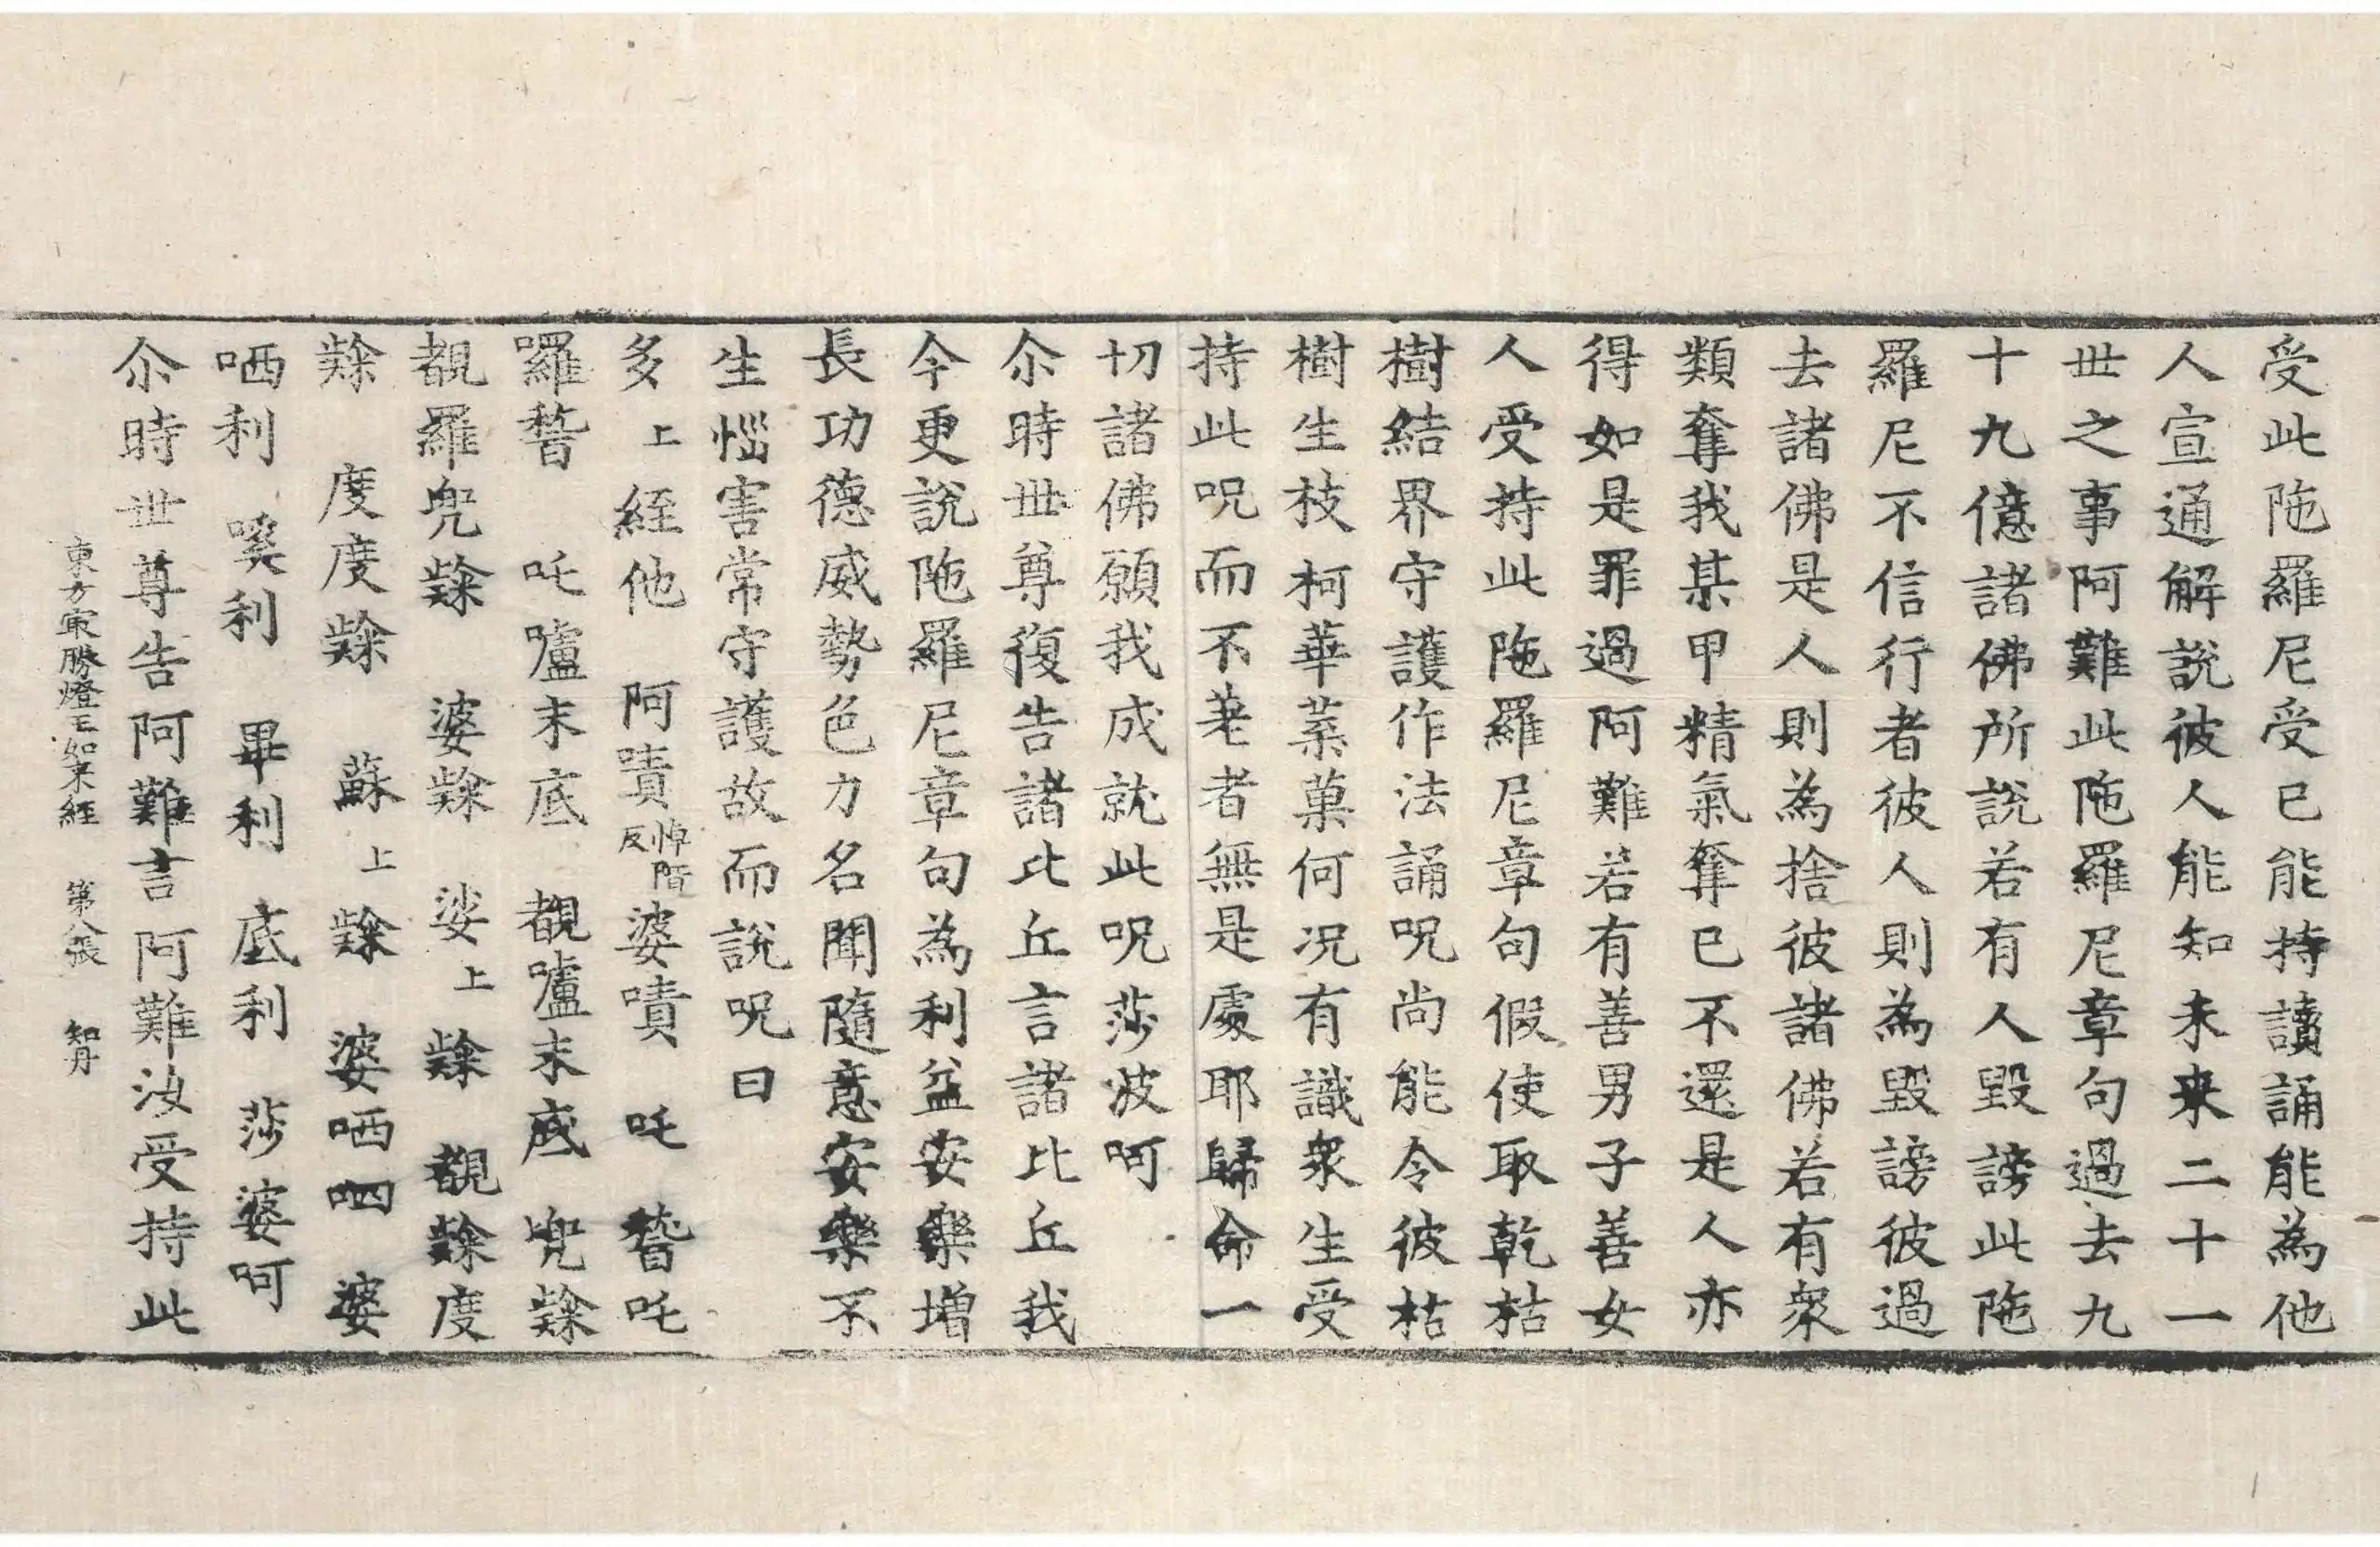 受此陁羅尼受已能持讀誦能為他
人宣通解說彼人能知未来二十一
世之事阿難此陁羅尼章句過去九
十九億諸佛所說若有人毀謗此陁
羅尼不信行者彼人則為毀謗彼過
去諸佛是人則為捨彼諸佛若有衆
類奪我某甲精氣奪已不還是人亦
得如是罪過阿難若有善男子善女
人受持此陁羅尼章句假使取乾枯
樹結界守護作法誦呪尚能令彼枯
樹生枝柯華葉菓何况有識衆生受
持此呪而不差者無是處耶歸命一
切諸佛願我成就此呪莎波呵
尒時世尊復告諸比丘言諸比丘我
今更說陁羅尼章句為利益安樂增
長功德威勢色力名聞隨意安樂不
生惱害常守護故而說呪曰
多上絰他 阿嘖悼階反婆嘖 吒 㗨吒
囉㗨 吒嚧末底 覩嚧末底 兜𨽻
覩羅兜𨽻 婆𨽻 娑上𨽻 覩𨽻度
𨽻 度度𨽻 蘇上𨽻 婆哂呬 婆
哂利 㗨利 畢利 底利 莎婆呵
尒時世尊告阿難言阿難汝受持此
東方㝡勝燈王如来經 第八張 知丹